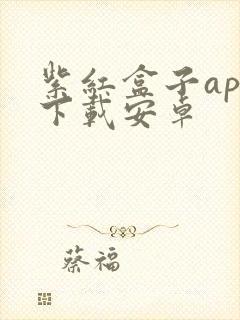 紫红盒子ap
下载安卓
蔡福